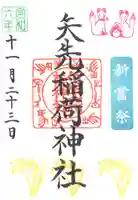 新嘗祭
矢先稲荷神社
令和六年
十一月二十三日